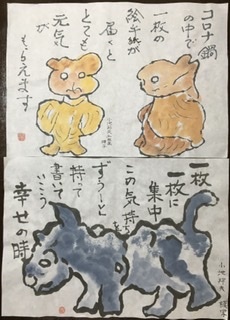 コロナ鍋
の中で
一枚の
絵手紙が
届くと
とても
元気
が
もらえます
一枚
一枚に
集中
この気持
ずうーと
持って
書いて
いこう
幸せの時